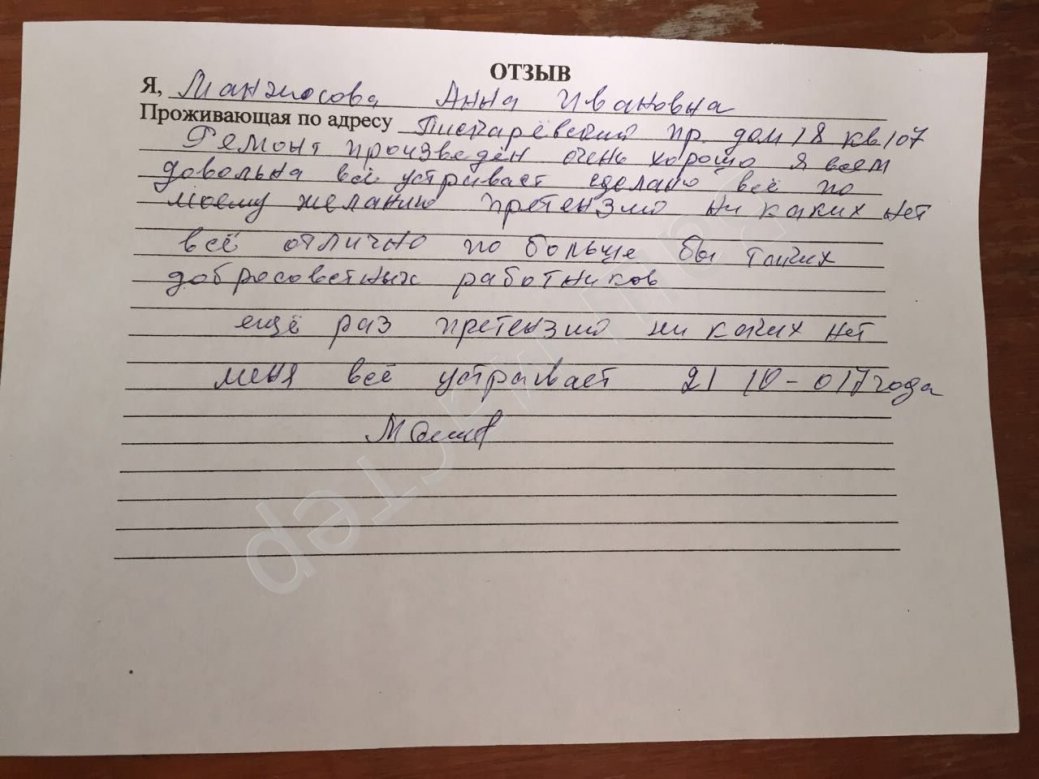 ОТЗЫВ
Я, Анна Ивановна
Проживающая по адресу Пискарёвский пр. дом 18 кв 107
Ремонт произведён очень хорошо я всем
довольна всё устраивает сделано всё по
моему желанию претензий ни каких нет
всё отлично по больше бы таких
добросоветных работников
ещё раз претензий ни каких нет
меня всё устраивает 21 10-017 года
мастер